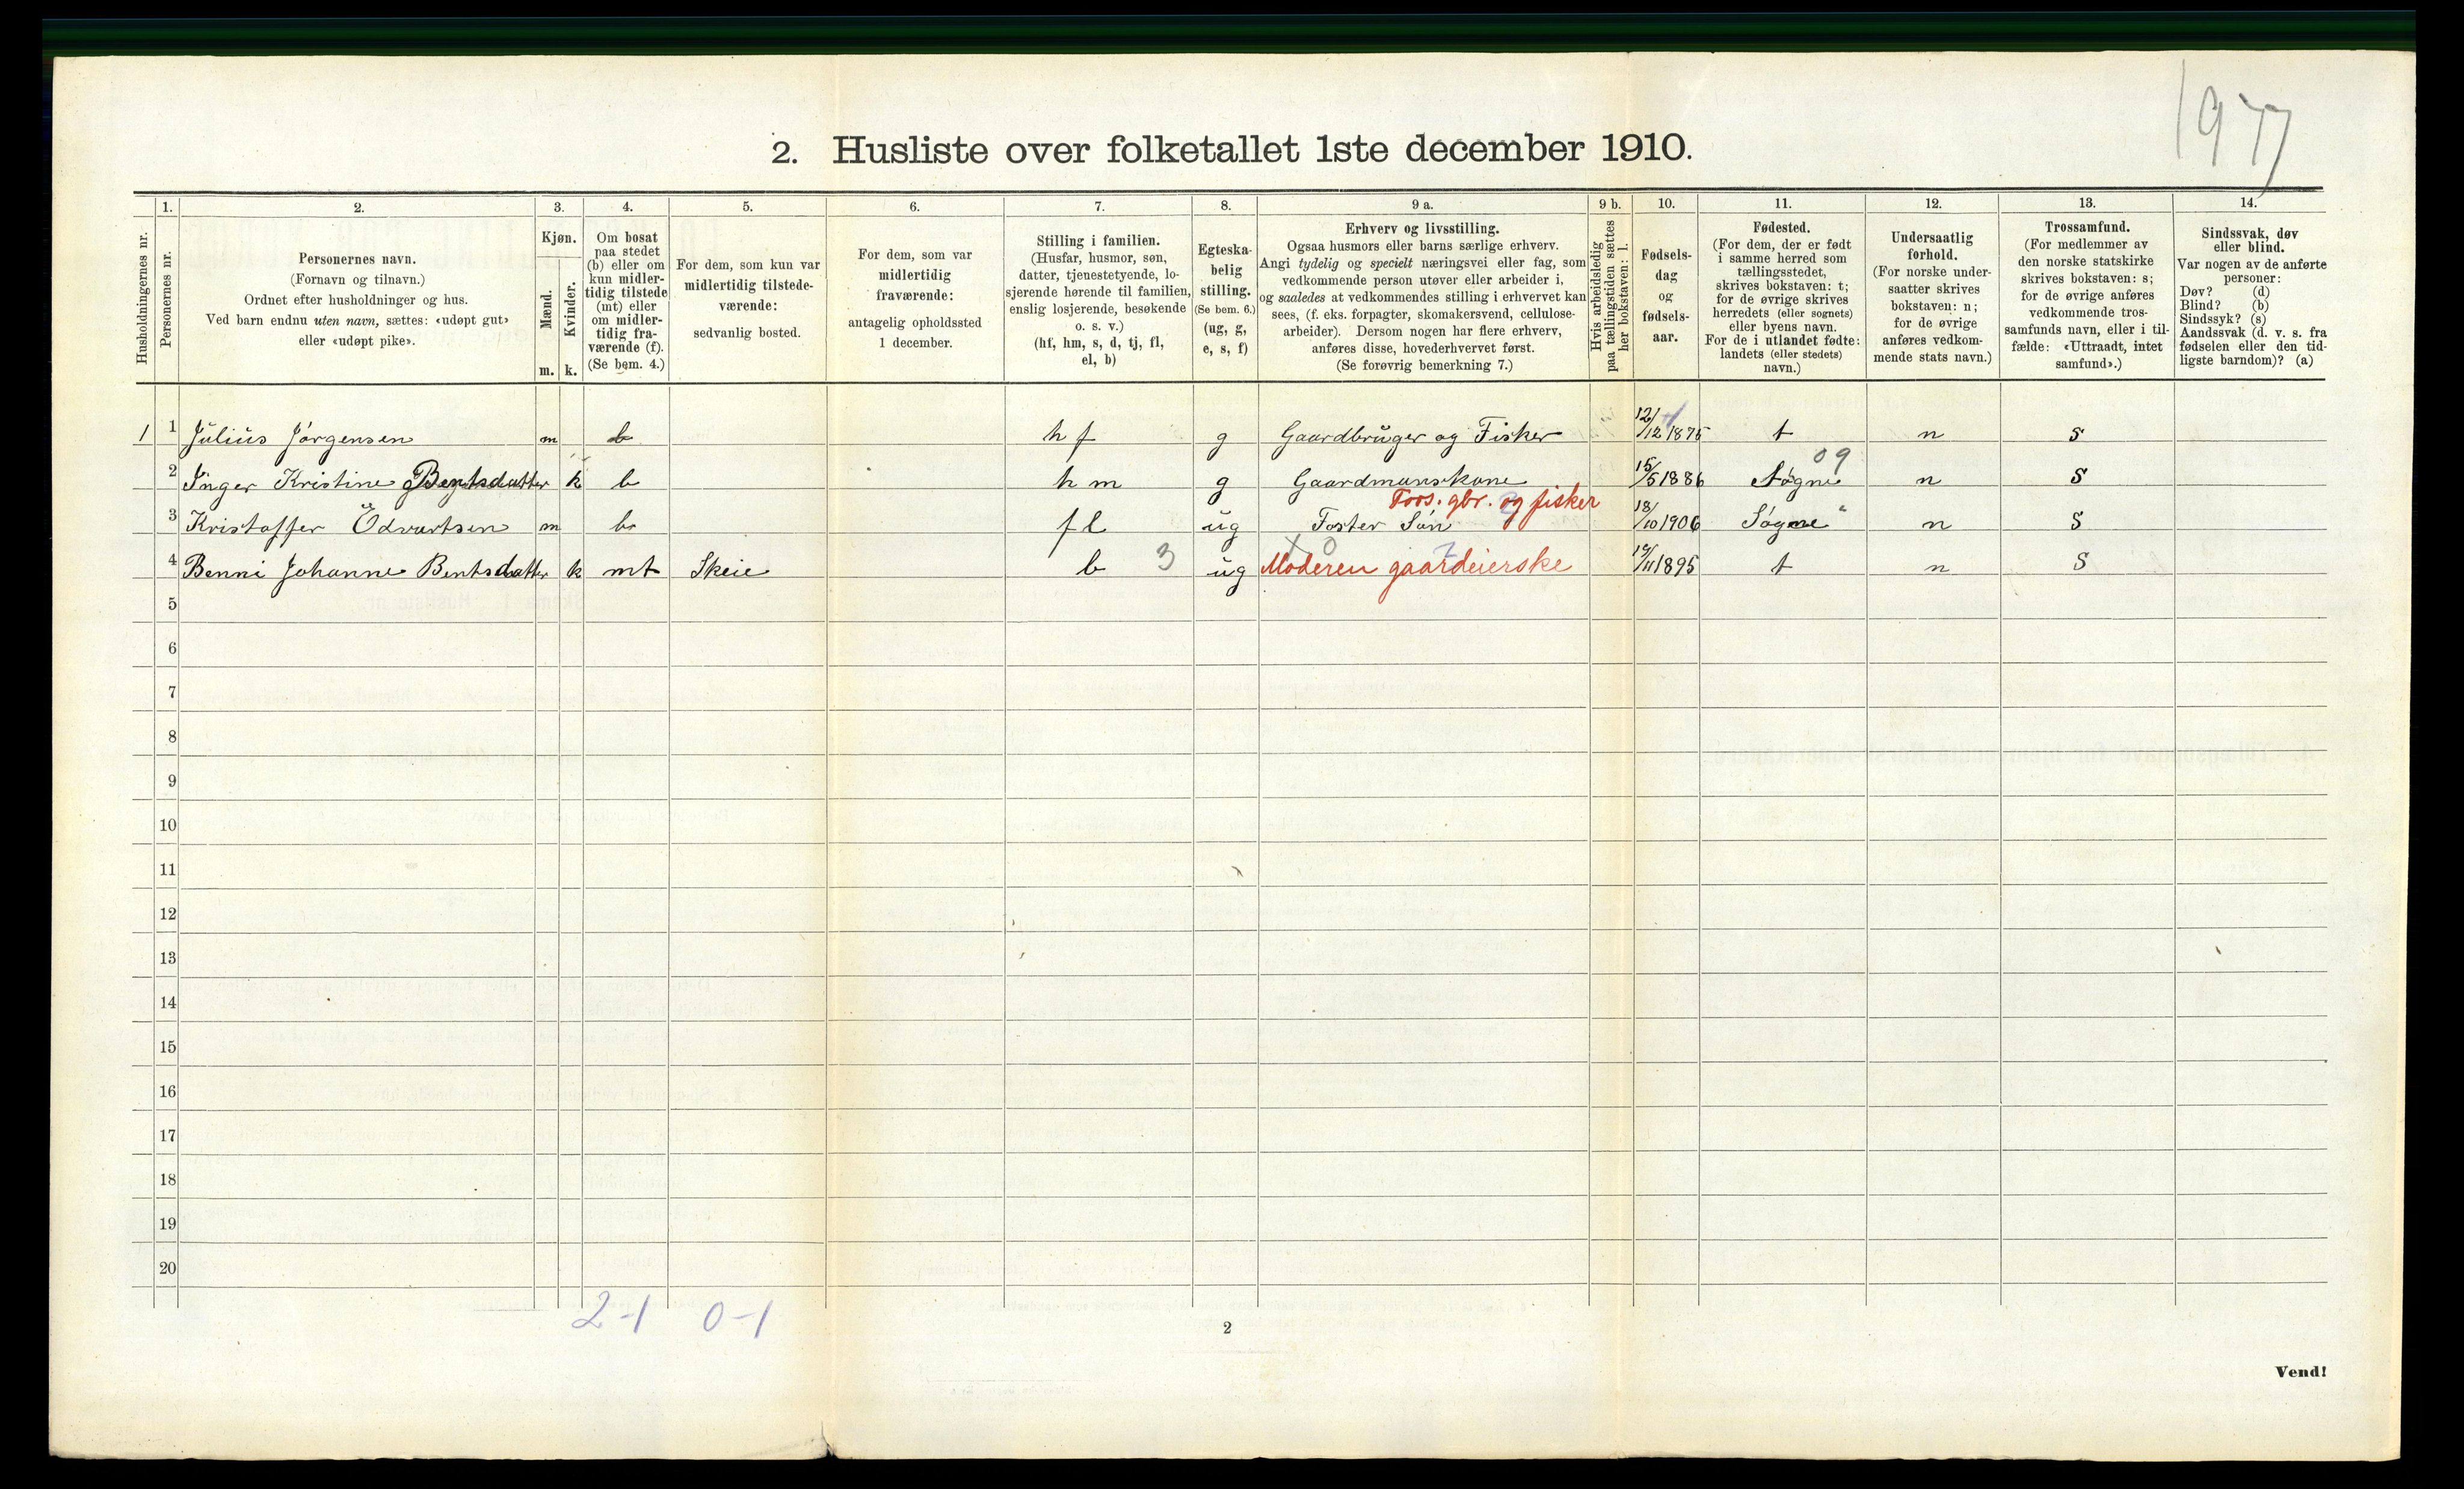 1977
2. Husliste over folketallet 1ste december 1910.
Husholdningernes nr.
1.
Personernes nr.
2.
Personernes navn.
(Fornavn og tilnavn.)
Ordnet efter husholdninger og hus.
Ved barn endnu uten navn, sættes: «udøpt gut»
eller «udøpt pike».
3.
Kjøn.
Mænd.
Kvinder.
m. k.
4.
Om bosat
paa stedet
(b) eller om
kun midler-
tidig tilstede
(mt) eller
om midler-
tidig fra-
værende (f).
(Se bem. 4.)
5.
For dem, som kun var
midlertidig tilstede-
værende:
sedvanlig bosted.
6.
For dem, som var
midlertidig
fraværende:
antagelig opholdssted
1 december.
7.
Stilling i familien.
(Husfar, husmor, søn,
datter, tjenestetyende, lo-
sjerende hørende til familien,
enslig losjerende, besøkende
o. s. v.)
(hf, hm, s, d, tj, fl,
el, b)
8.
Egteska-
belig
stilling.
(Se bem. 6.)
(ug, g,
e, s, f)
9 a.
Erhverv og livsstilling.
Ogsaa husmors eller barns særlige erhverv.
Angi tydelig og specielt næringsvei eller fag, som
vedkommende person utøver eller arbeider i,
og saaledes at vedkommendes stilling i erhvervet kan
sees, (f. eks. forpagter, skomakersvend, cellulose-
arbeider). Dersom nogen har flere erhverv,
anføres disse, hovederhvervet først.
(Se forøvrig bemerkning 7.)
9 b.
Hvis arbeidsledig
paa tællingstiden sættes
her bokstaven: l.
10.
Fødsels-
dag
og
fødsels-
aar.
11.
Fødested.
(For dem, der er født
i samme herred som
tællingsstedet,
skrives bokstaven: t;
for de øvrige skrives
herredets (eller sognets)
eller byens navn.
For de i utlandet fødte:
landets (eller stedets)
navn.)
12.
Undersaatlig
forhold.
(For norske under-
saatter skrives
bokstaven: n;
for de øvrige
anføres vedkom-
mende stats navn.)
13.
Trossamfund.
(For medlemmer av
den norske statskirke
skrives bokstaven: s;
for de øvrige anføres
vedkommende tros-
samfunds navn, eller i til-
fælde: «Uttraadt, intet
samfund».)
14.
Sindssvak, døv
eller blind.
Var nogen av de anførte
personer:
Døv? (d)
Blind? (b)
Sindssyk? (s)
Aandssvak (d. v. s. fra
fødselen eller den tid-
ligste barndom)? (a)
1 1 Julius Jørgensen m b hf g Gaardbruger og Fisker 12/12 1875 t n s
09
2 Inger Kristine Bentsdatter k b hm g Gaardmanskone 15/5 1886 Søgne n s
Fors. gbr. og fisker
3 Kristoffer Edvartsen m b fl ug Foster Søn 18/10 1906 Søgne " n s
4 Benni Johanne Bentsdatter k mt Skeie b 3 ug Moderen gaardeierske 19/11 1895 t n s
5
6
7
8
9
10
11
12
13
14
15
16
17
18
19
20
2-1 0-1
2
Vend!